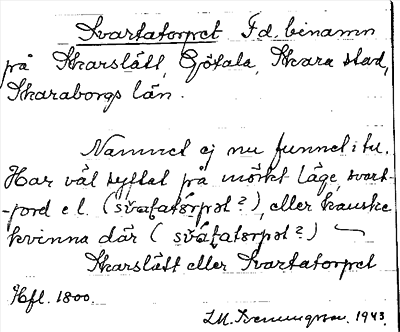 Svartatorpet F.d. binamn
på Skarslätt, Götala, Skara stad,
Skaraborgs län.
Namnet ej nu funnet i tu.
Har väl syftat på mörkt läge, svart-
-jord e l. (svǎṭatórpət?), eller kanske
kvinna där (svǎṭatorpət?)
Skarslätt eller Svartatorpet
Hfl. 1800.
1943.